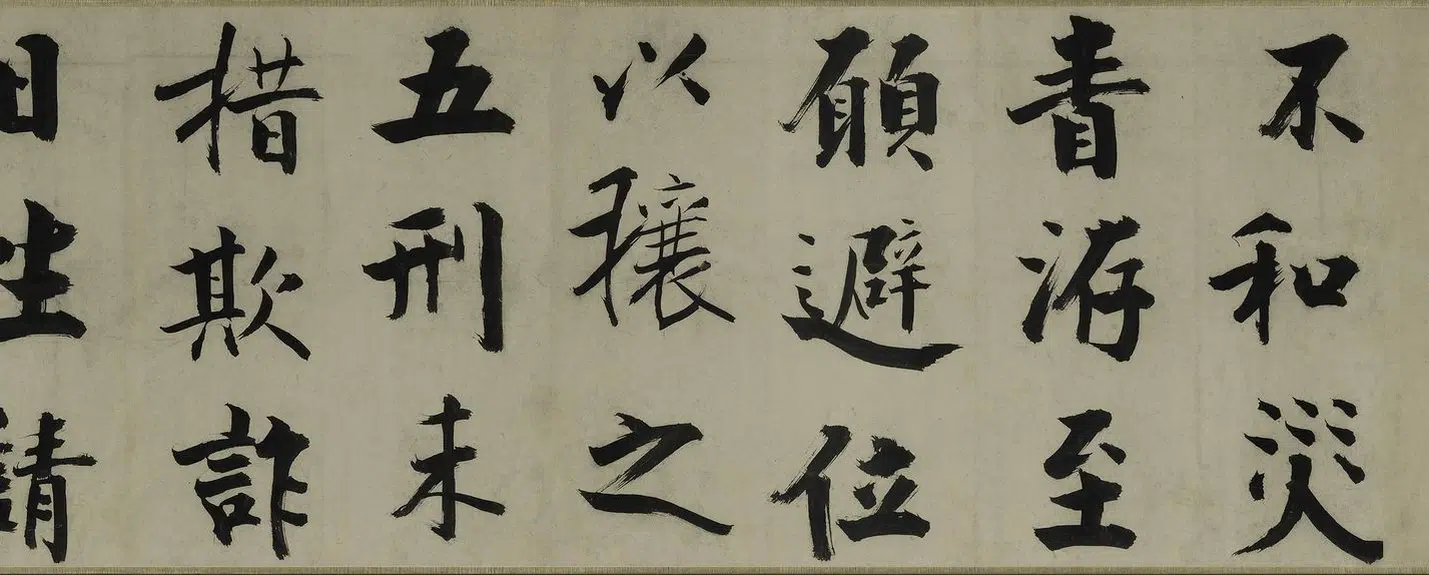 不和災
眚洊至
願避位
以禳之
五刑未
措欺詐
日生請